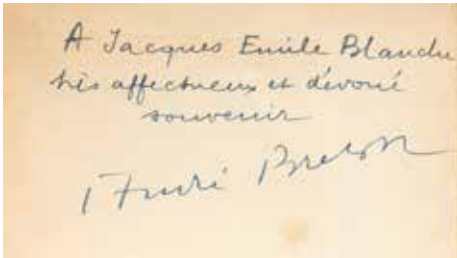 A Jacques Emile Blanche
très affectueux et dévoué
souvenir
André Breton